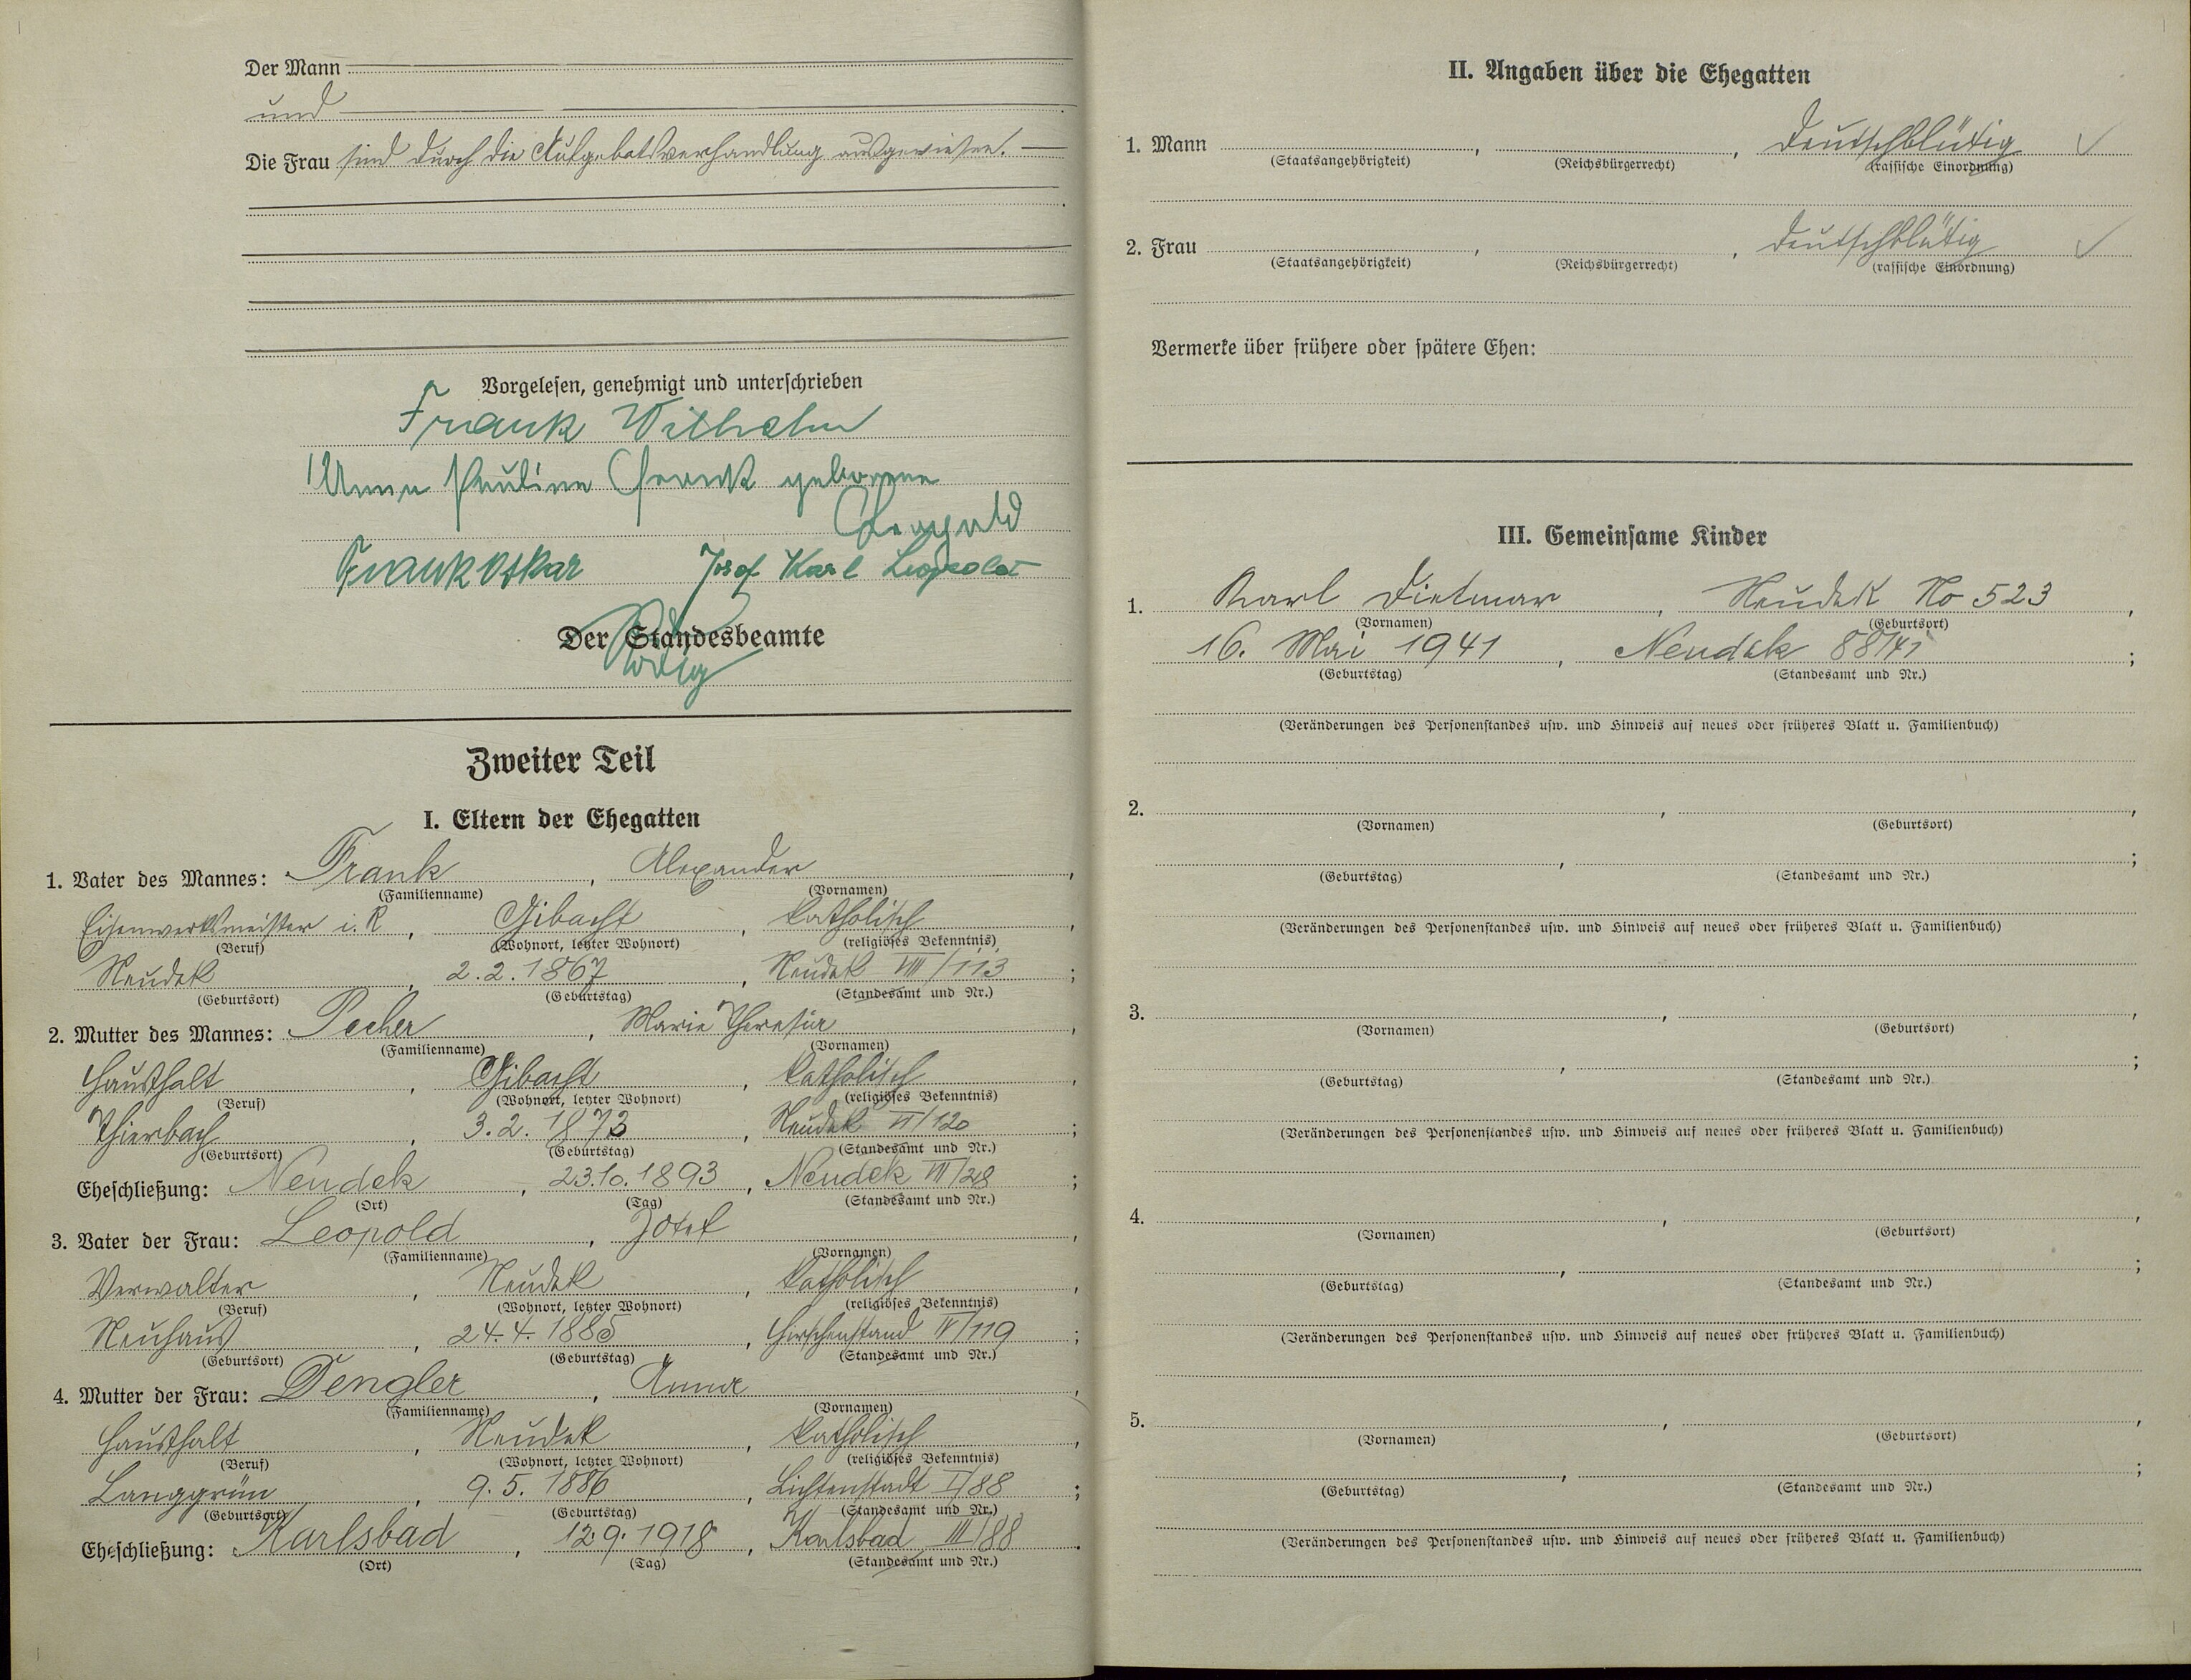 Der Mann
und
Die Frau sind durch die Aufgebotsverhandlung ausgewiesen.
Vorgelesen, genehmigt und unterschrieben
Frank Wilhelm
Anna Pauline Frank geborene
Leopold
Frank Oskar Josef Karl Leopold
Der Standesbeamte
Zweiter Teil
I. Eltern der Ehegatten
1. Vater des Mannes: Frank, Alexander,
(Familienname) (Vornamen)
Eisenwerksmeister i. R, Gibacht, katholisch,
(Beruf) (Wohnort, letzter Wohnort) (religiöses Bekenntnis)
Neudek, 2.2.1867, Neudek VIII/113;
(Geburtsort) (Geburtstag) (Standesamt und Nr.)
2. Mutter des Mannes: Pecher, Marie Theresia,
(Familienname) (Vornamen)
Haushalt, Gibacht, katholisch,
(Beruf) (Wohnort, letzter Wohnort) (religiöses Bekenntnis)
Thierbach, 3.2.1873, Neudek VI/120;
(Geburtsort) (Geburtstag) (Standesamt und Nr.)
Eheschließung: Neudek, 23.10.1893, Neudek VII/28;
(Ort) (Tag) (Standesamt und Nr.)
3. Vater der Frau: Leopold, Josef,
(Familienname) (Vornamen)
Verwalter, Neudek, katholisch,
(Beruf) (Wohnort, letzter Wohnort) (religiöses Bekenntnis)
Neuhaus, 24.4.1885, Hirschenstand IV/119;
(Geburtsort) (Geburtstag) (Standesamt und Nr.)
4. Mutter der Frau: Dengler, Anna,
(Familienname) (Vornamen)
Haushalt, Neudek, katholisch,
(Beruf) (Wohnort, letzter Wohnort) (religiöses Bekenntnis)
Langgrün, 9.5.1886, Lichtenstadt I/88;
(Geburtsort) (Geburtstag) (Standesamt und Nr.)
Eheschließung: Karlsbad, 12.9.1918, Karlsbad III/88.
(Ort) (Tag) (Standesamt und Nr.)
II. Angaben über die Ehegatten
1. Mann , , deutschblütig ✓
(Staatsangehörigkeit) (Reichsbürgerrecht) (rassische Einordnung)
2. Frau , , deutschblütig ✓
(Staatsangehörigkeit) (Reichsbürgerrecht) (rassische Einordnung)
Vermerke über frühere oder spätere Ehen:
III. Gemeinsame Kinder
1. Karl Dietmar, Neudek No 523,
(Vornamen) (Geburtsort)
16. Mai 1941, Neudek 88/41;
(Geburtstag) (Standesamt und Nr.)
(Veränderungen des Personenstandes usw. und Hinweis auf neues oder früheres Blatt u. Familienbuch)
2. , ,
(Vornamen) (Geburtsort)
, ;
(Geburtstag) (Standesamt und Nr.)
(Veränderungen des Personenstandes usw. und Hinweis auf neues oder früheres Blatt u. Familienbuch)
3. , ,
(Vornamen) (Geburtsort)
, ;
(Geburtstag) (Standesamt und Nr.)
(Veränderungen des Personenstandes usw. und Hinweis auf neues oder früheres Blatt u. Familienbuch)
4. , ,
(Vornamen) (Geburtsort)
, ;
(Geburtstag) (Standesamt und Nr.)
(Veränderungen des Personenstandes usw. und Hinweis auf neues oder früheres Blatt u. Familienbuch)
5. , ,
(Vornamen) (Geburtsort)
, ;
(Geburtstag) (Standesamt und Nr.)
(Veränderungen des Personenstandes usw. und Hinweis auf neues oder früheres Blatt u. Familienbuch)